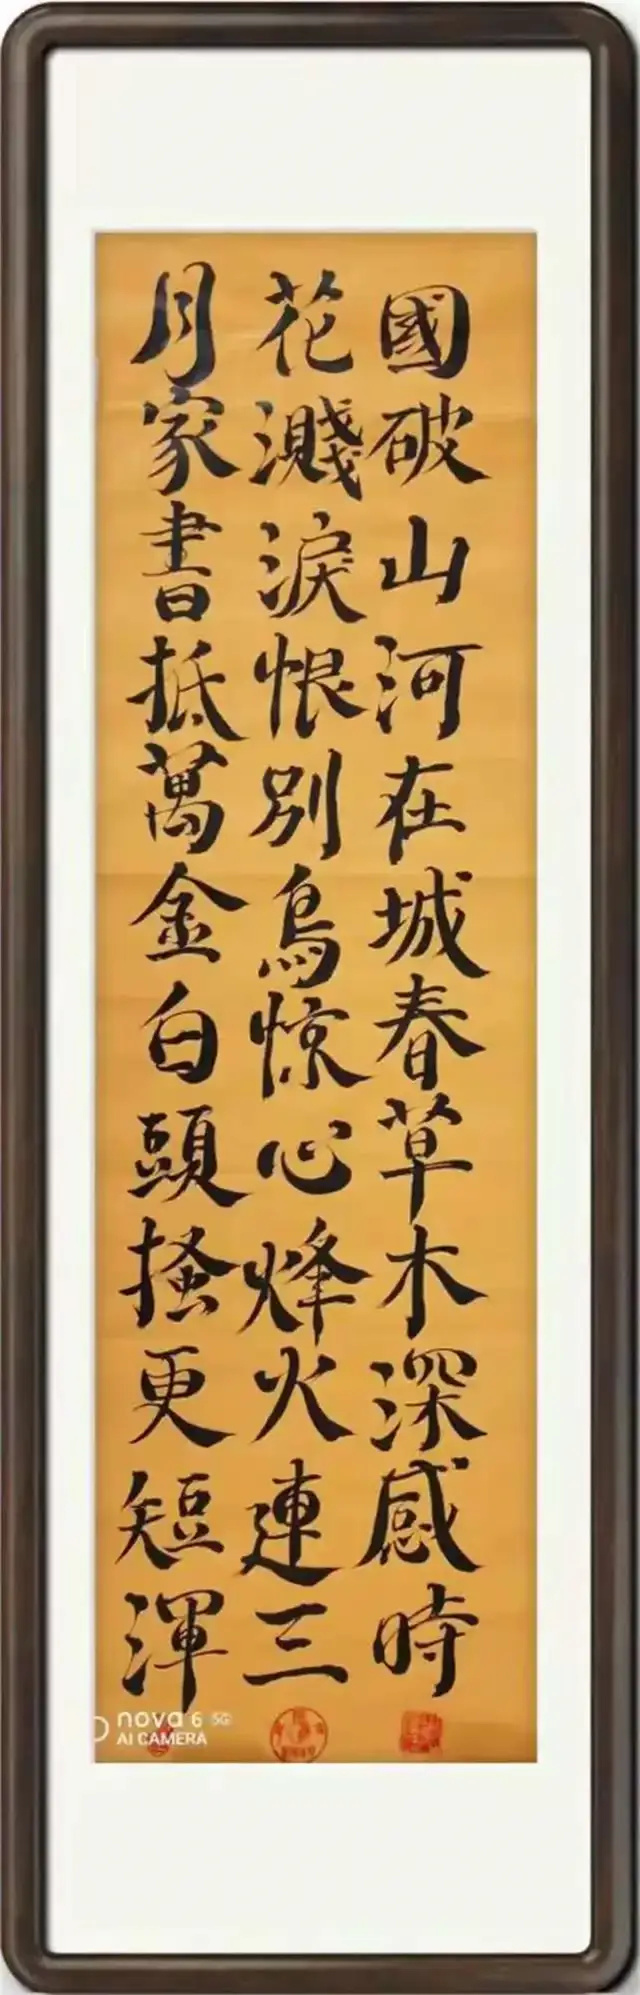 國破山河在城春草木深感時
花濺淚恨別鳥惊心烽火連三
月家書抵萬金白頭搔更短渾
nova 6 5G
AI CAMERA